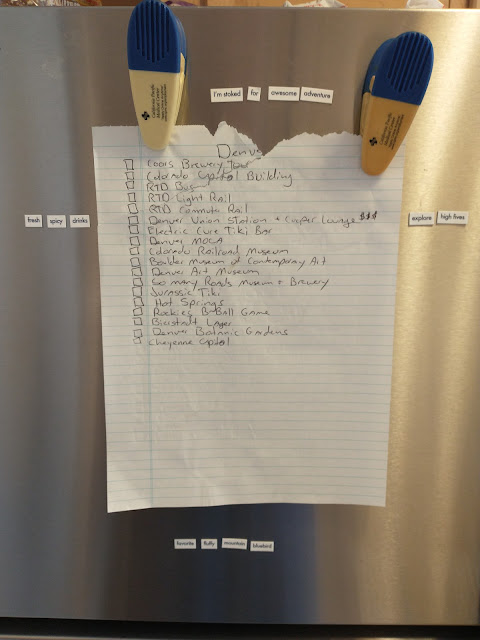 I'm stoked for awesome adventure
California Pacific Medical Center
California Pacific Medical Center
Denver
Coors Brewery Tour
Colorado Capitol Building
RTD Bus
RTD Light Rail
RTD Commuter Rail
Denver Union Station + Cooper Lounge $$$
Electric Cure Tiki Bar
Denver MOCA
Colorado Railroad Museum
Boulder Museum of Contemporary Art
Denver Art Museum
So Many Roads Museum + Brewery
Jurassic Tiki
Hot Springs
Rockies B-Ball Game
Bierstadt Lager
Denver Botanic Gardens
Cheyenne Capitol
fresh spicy drinks
explore high fives
favorite fluffy mountain bluebird